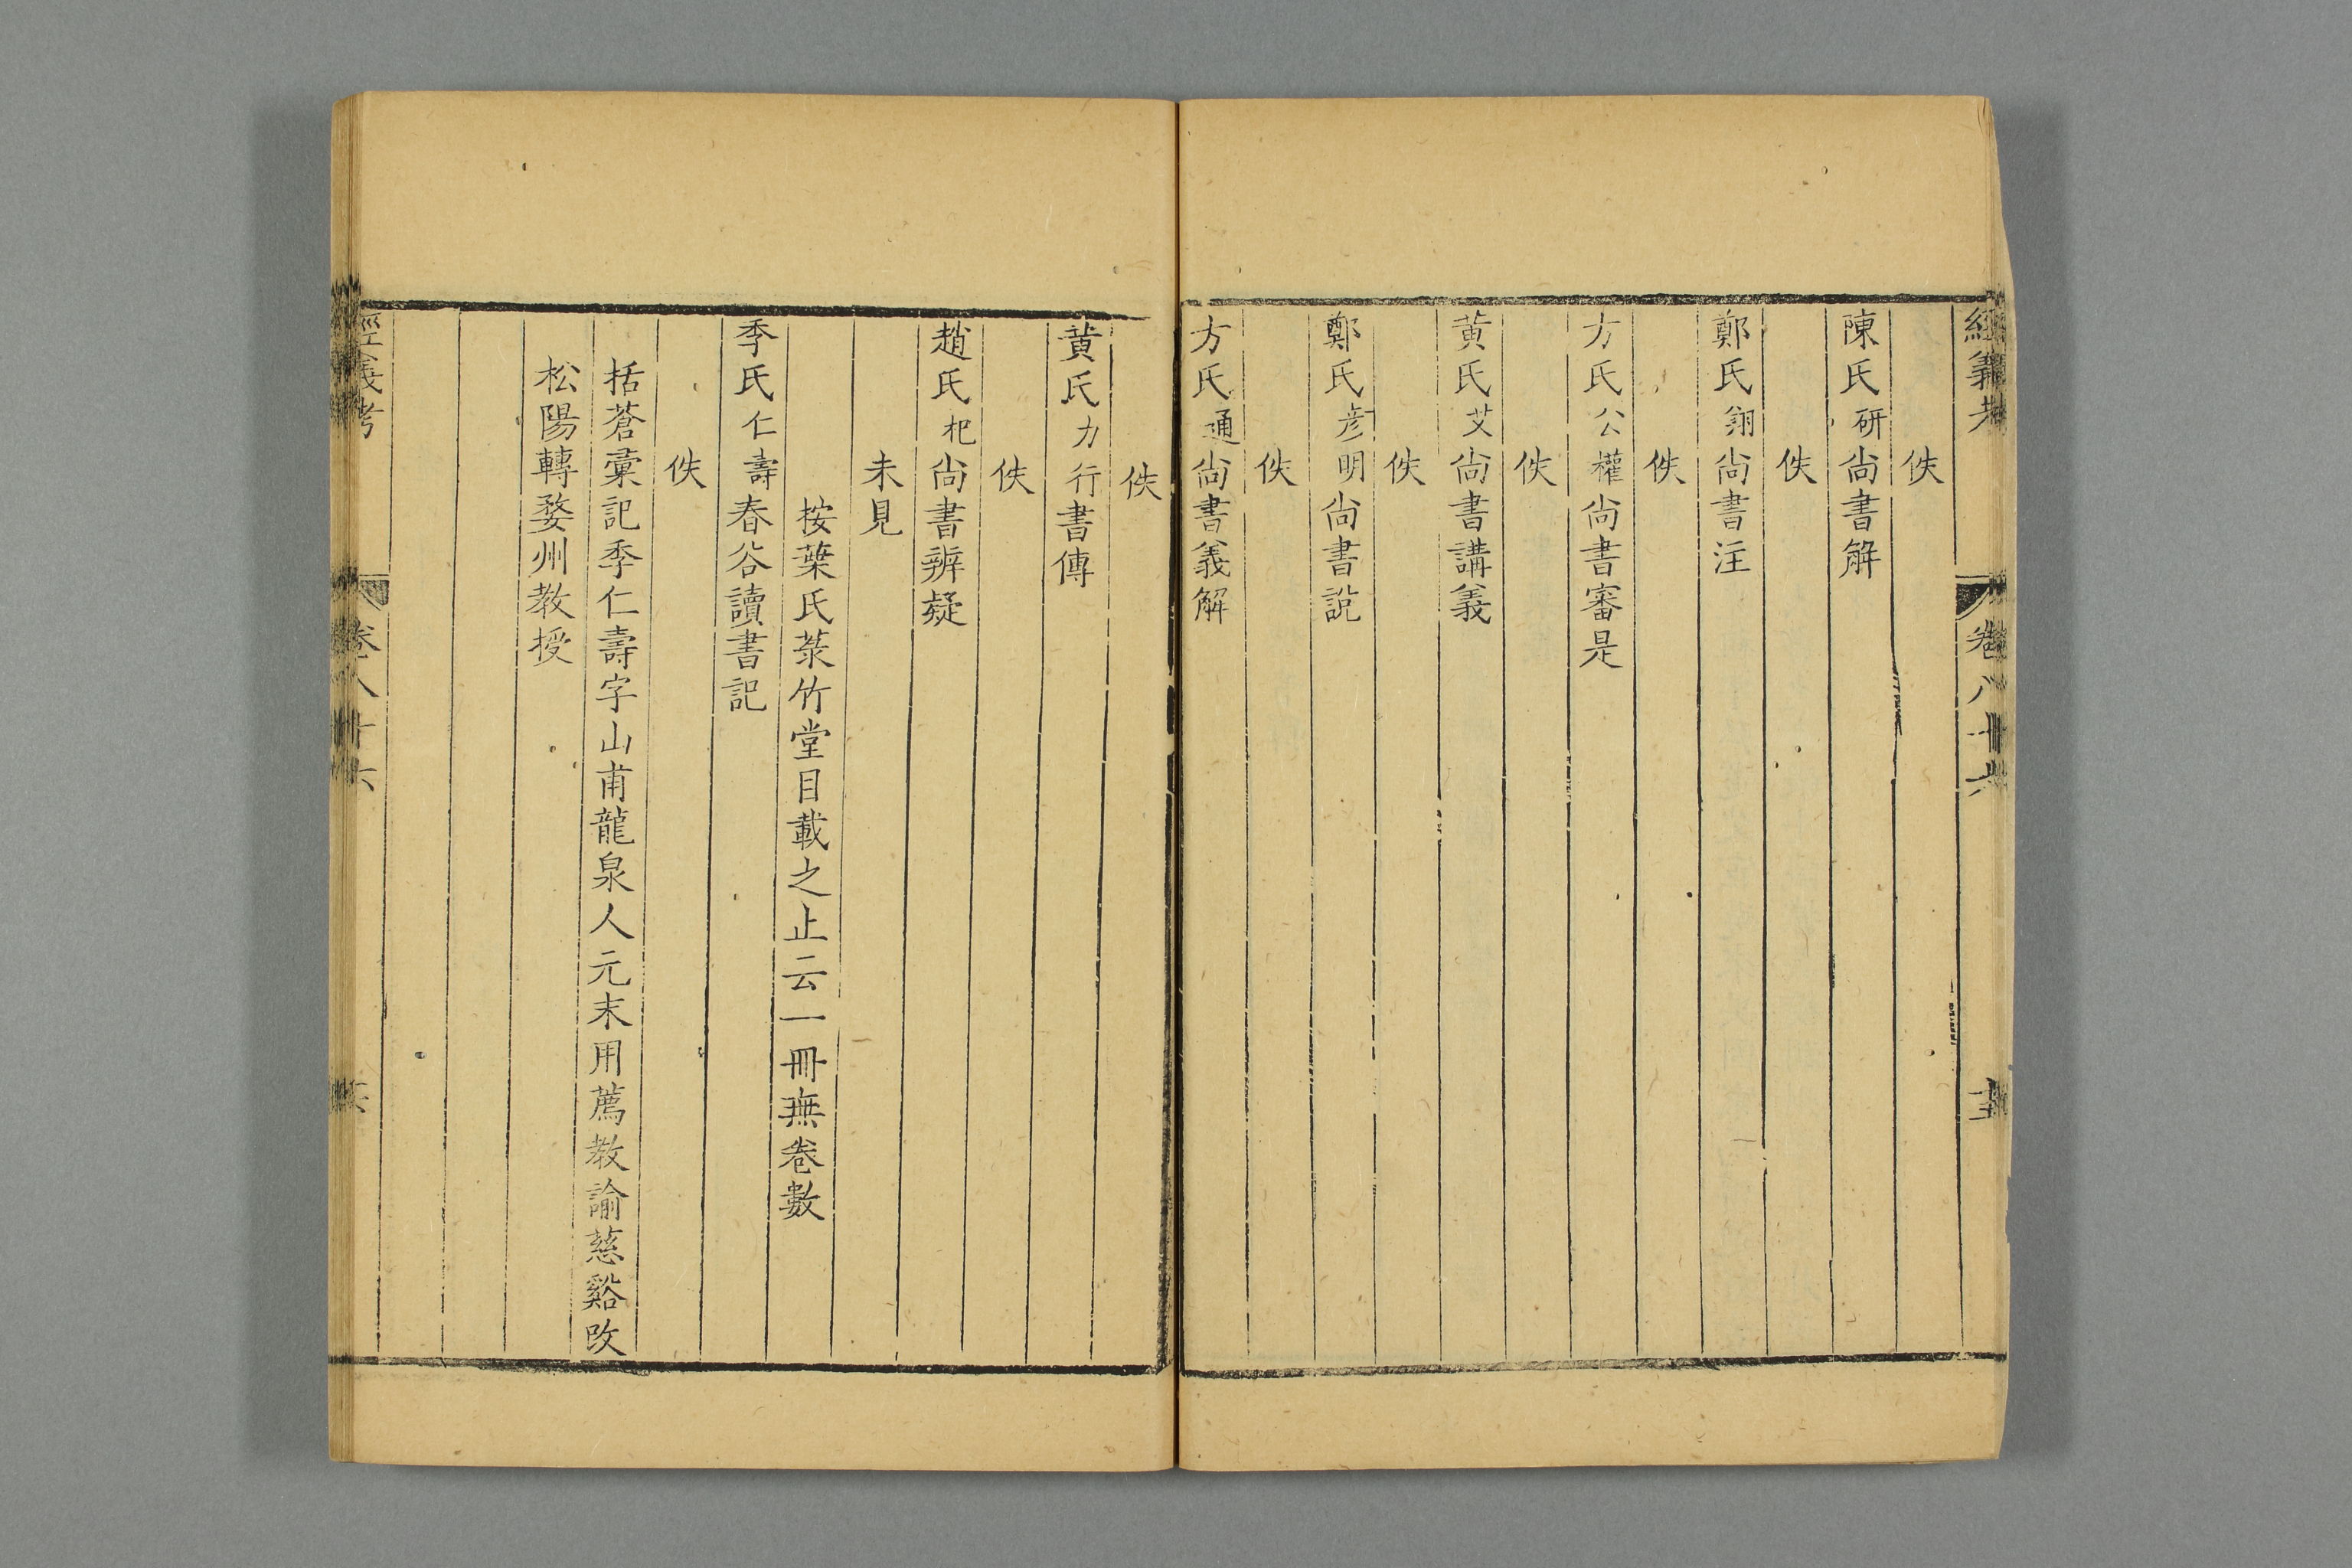 經義考 卷八十六
佚
陳氏研尚書解
佚
鄭氏翔尚書注
佚
方氏公權尚書審是
佚
黄氏艾尚書講義
佚
鄭氏彦明尚書說
佚
方氏通尚書義解
佚
黄氏力行書傳
佚
趙氏杞尚書辨疑
未見
按葉氏菉竹堂目載之止云一冊無卷數
季氏仁壽春谷讀書記
佚
括蒼彚記季仁壽字山甫龍泉人元末用薦教諭慈谿改
松陽轉婺州教授
經義考 卷八十六